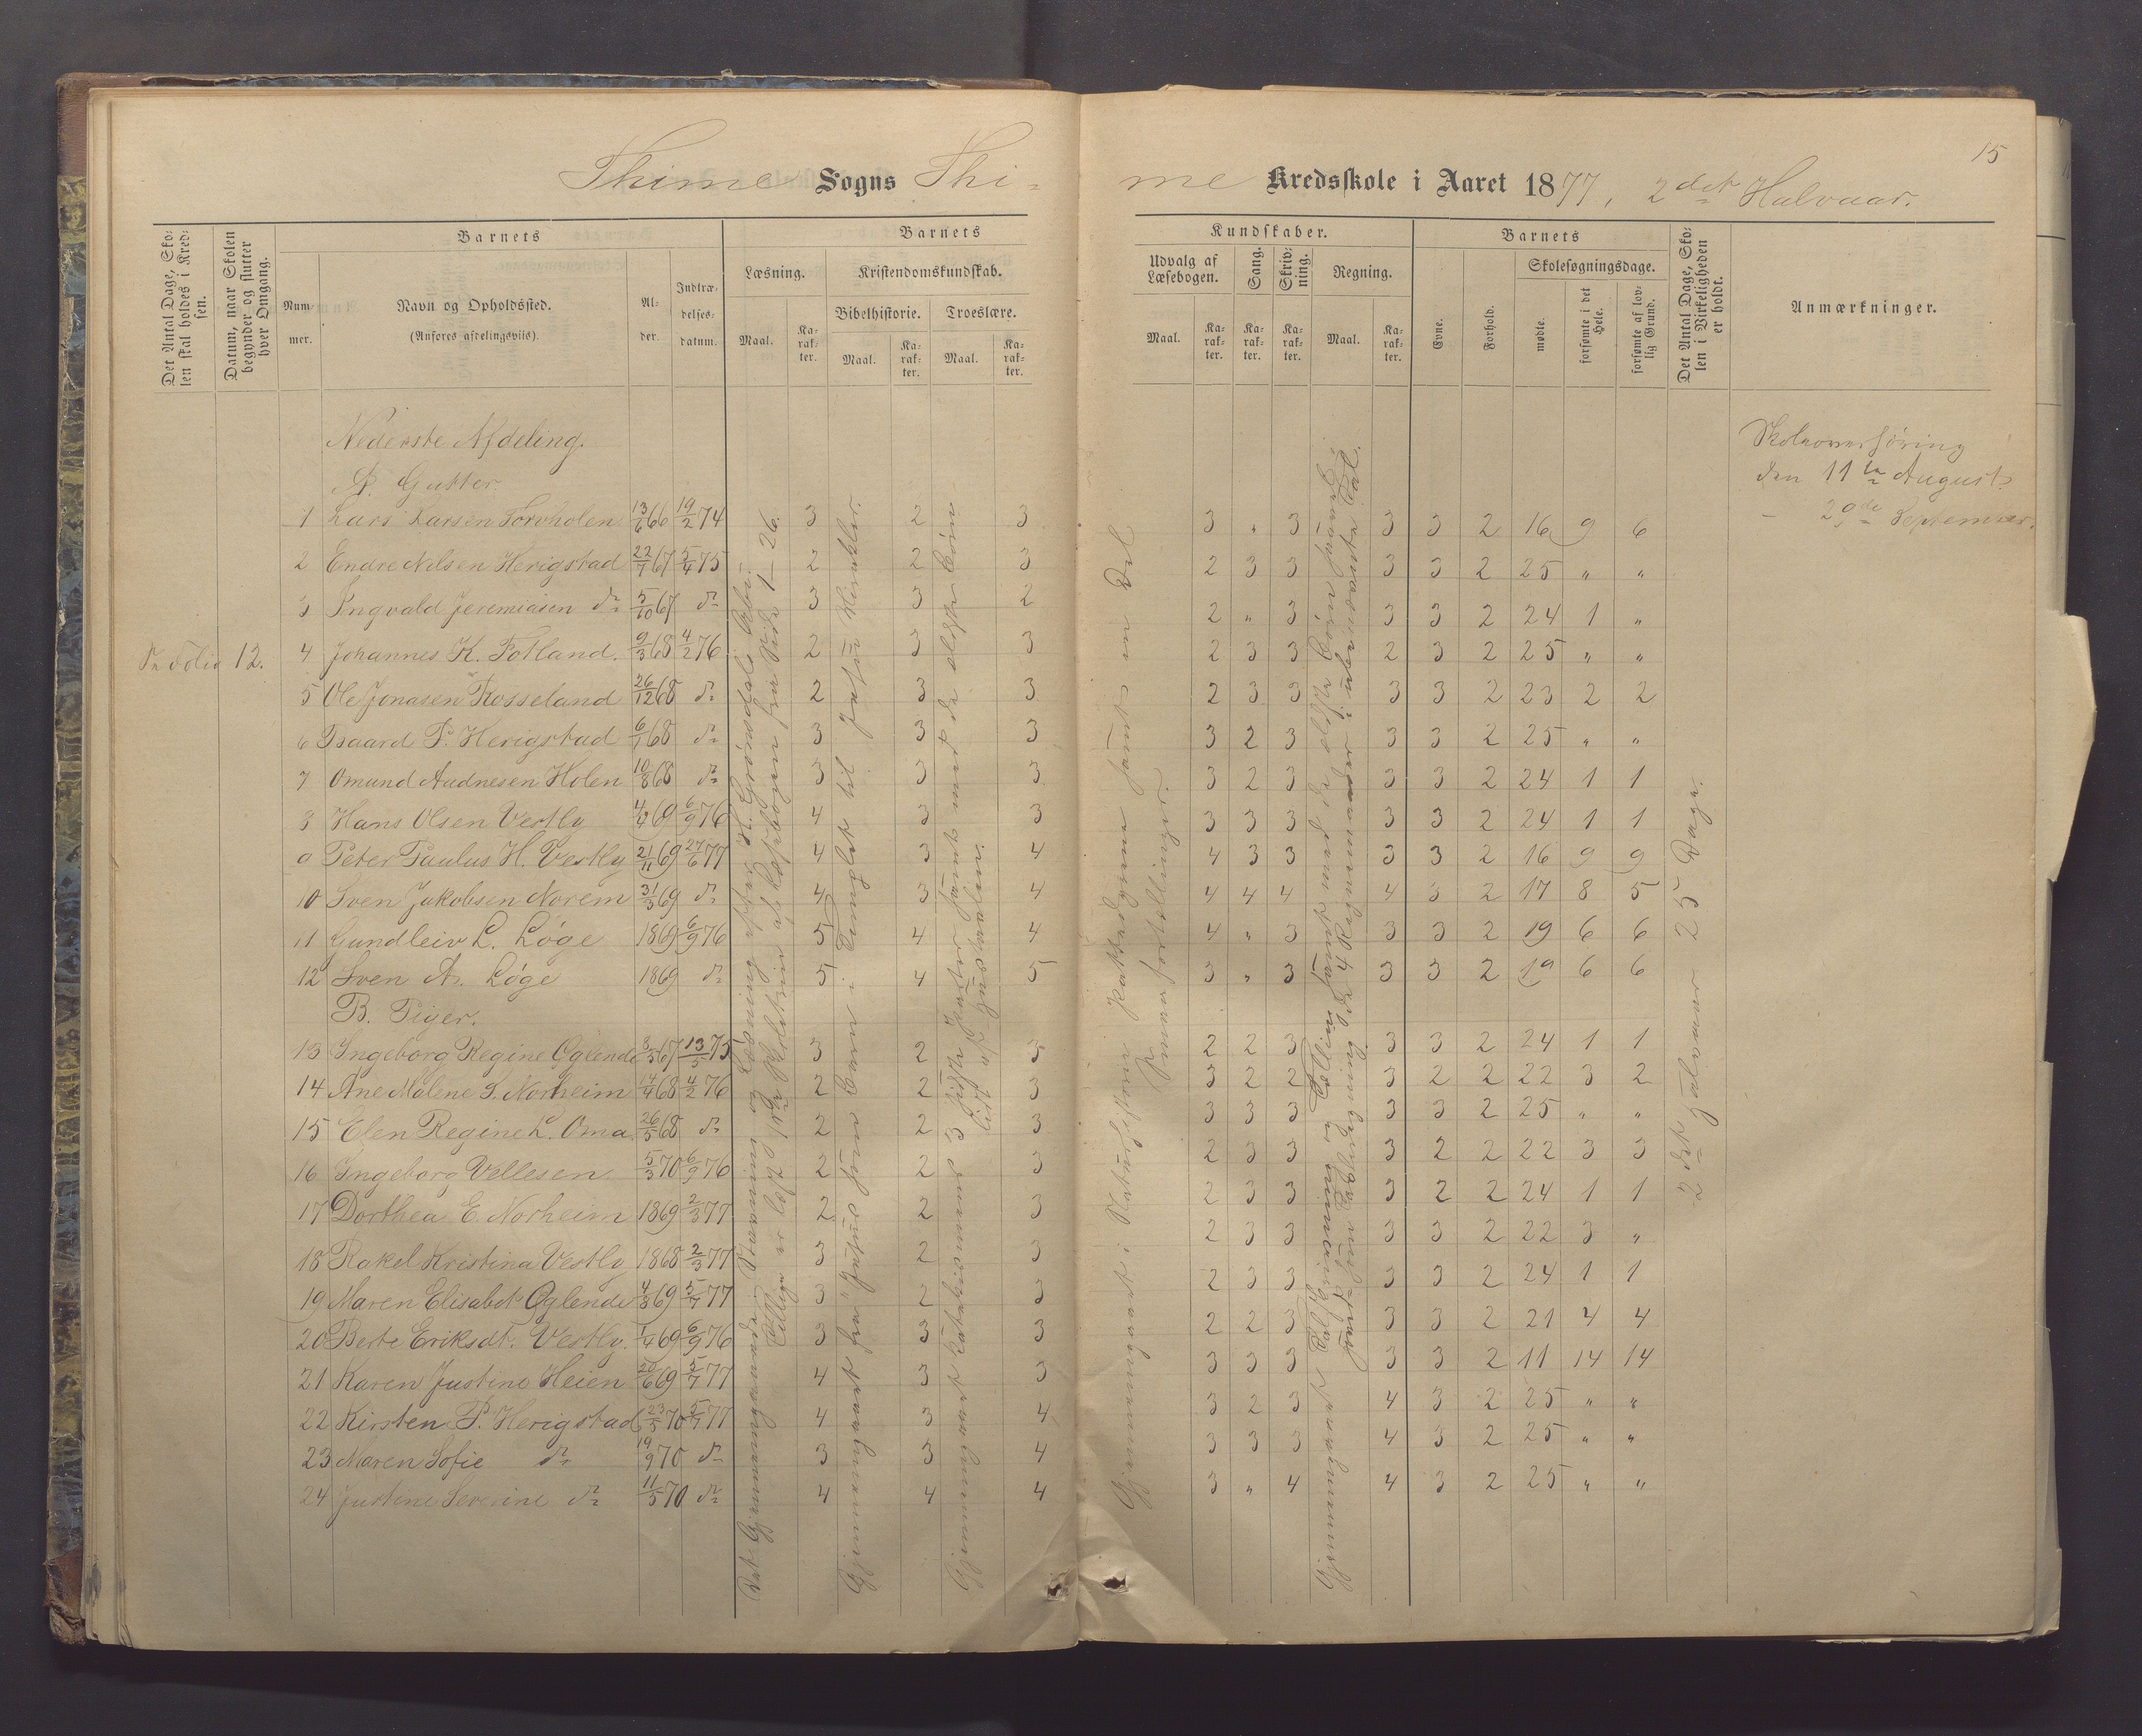 15
Thime Sogns Thi-
me Kredsskole i Aaret 1877, 2det Halvaar.
Det Antal Dage, Sko-
len skal holdes i Kred-
sen.
Datum, naar Skolen
begynder og slutter
hver Omgang.
Barnets
Num-
mer.
Navn og Opholdssted.
(Anføres afdelingsviis).
Al-
der.
Indtræ-
delses-
datum.
Barnets
Læsning.
Maal.
Ka-
rak-
ter.
Kristendomskundskab.
Bibelhistorie.
Maal.
Ka-
rak-
ter.
Troeslære.
Maal.
Ka-
rak-
ter.
Kundskaber.
Udvalg af
Læsebogen.
Maal.
Ka-
rak-
ter.
Sang.
Ka-
rak-
ter.
Skriv-
ning.
Ka-
rak-
ter.
Regning.
Maal.
Ka-
rak-
ter.
Barnets
Evne.
Forhold.
Skolesøgningsdage.
mødte.
forsømte i det
Hele.
forsømte af lov-
lig Grund.
Det Antal Dage, Sko-
len i Virkeligheden
er holdt.
Anmærkninger.
Nederste Afdeling.
A. Gutter.
den 11te August
29de September.
1 Lars Larsen Torvholen 13/6 66 19/2 74 3 2 3 3 " 3 3 3 2 16 9 6
2 Endre Nilsen Herigstad 22/7 67 5/4 75 2 2 3 2 3 3 3 3 2 25 " "
3 Ingvald Jeremiasen do 5/10 67 do 3 3 2 2 " 3 3 3 2 24 1 "
Folio 12.
4 Johannes K. Fotland. 9/3 68 4/2 76 2 3 3 2 3 3 2 3 2 25 " "
5 Ole Jonasen Rosseland 26/12 68 do 2 3 3 2 3 3 3 3 2 23 2 2
6 Baard P. Herigstad 6/1 68 do 3 3 3 3 2 3 3 3 2 25 " "
7 Omund Audnesen Holen 10/8 68 do 3 3 3 3 2 3 3 3 2 24 1 1
8 Hans Olsen Vestly 4/4 69 6/9 76 4 3 3 3 3 3 3 3 2 24 1 1
9 Peter Paulus H. Vestly 21/11 69 27/6 77 4 3 4 4 3 3 3 3 2 16 9 9
10 Sven Jakobsen Norem 31/3 69 do 4 3 4 4 4 4 4 3 2 17 8 5
11 Gundleiv L. Løge 1869 6/9 76 5 4 4 4 " 3 3 3 2 19 6 6
12 Sven A. Løge 1869 do 5 4 5 3 " 3 3 3 2 19 6 6
B. Piger.
13 Ingeborg Regine Oglende 3/5 67 13/5 75 3 2 3 2 2 3 3 3 2 24 1 1
14 Ane Malene S. Norheim 14/4 68 4/2 76 2 2 3 3 2 2 3 2 2 22 3 2
15 Elen Regine L. Oma 26/5 68 do 2 2 3 3 3 3 3 3 2 25 " "
16 Ingeborg Vellesen 5/3 70 6/9 76 2 2 3 2 3 3 3 2 2 22 3 3
17 Dorthea E. Norheim 1869 2/3 77 2 2 3 2 3 3 3 2 2 24 1 1
18 Rakel Kristina Vestly 1868 2/3 77 3 2 3 2 3 3 3 3 2 22 3 "
19 Maren Elisabet Oglende 4/3 69 5/7 77 3 2 3 2 3 3 3 3 2 24 1 1
20 Berte Eriksdt. Vestly 1/4 69 6/9 76 3 3 3 2 2 3 3 3 2 21 4 4
21 Karen Justine Heien 20/6 69 5/7 77 4 3 3 3 3 3 3 3 2 11 14 14
22 Kirsten P. Herigstad 23/5 70 5/7 77 4 3 4 3 2 3 4 3 2 25 " "
23 Maren Sofie do 19/9 70 do 3 3 4 3 3 3 4 3 2 25 " "
24 Justine Severine do 11/5 70 do 4 4 4 3 " 4 4 3 2 25 " "
Gjennemgaaet fra "Jesus som Barn i Templet" til Jesu Mirakler.
Smaafortællinger.
2det Halvaar 25 Dage.